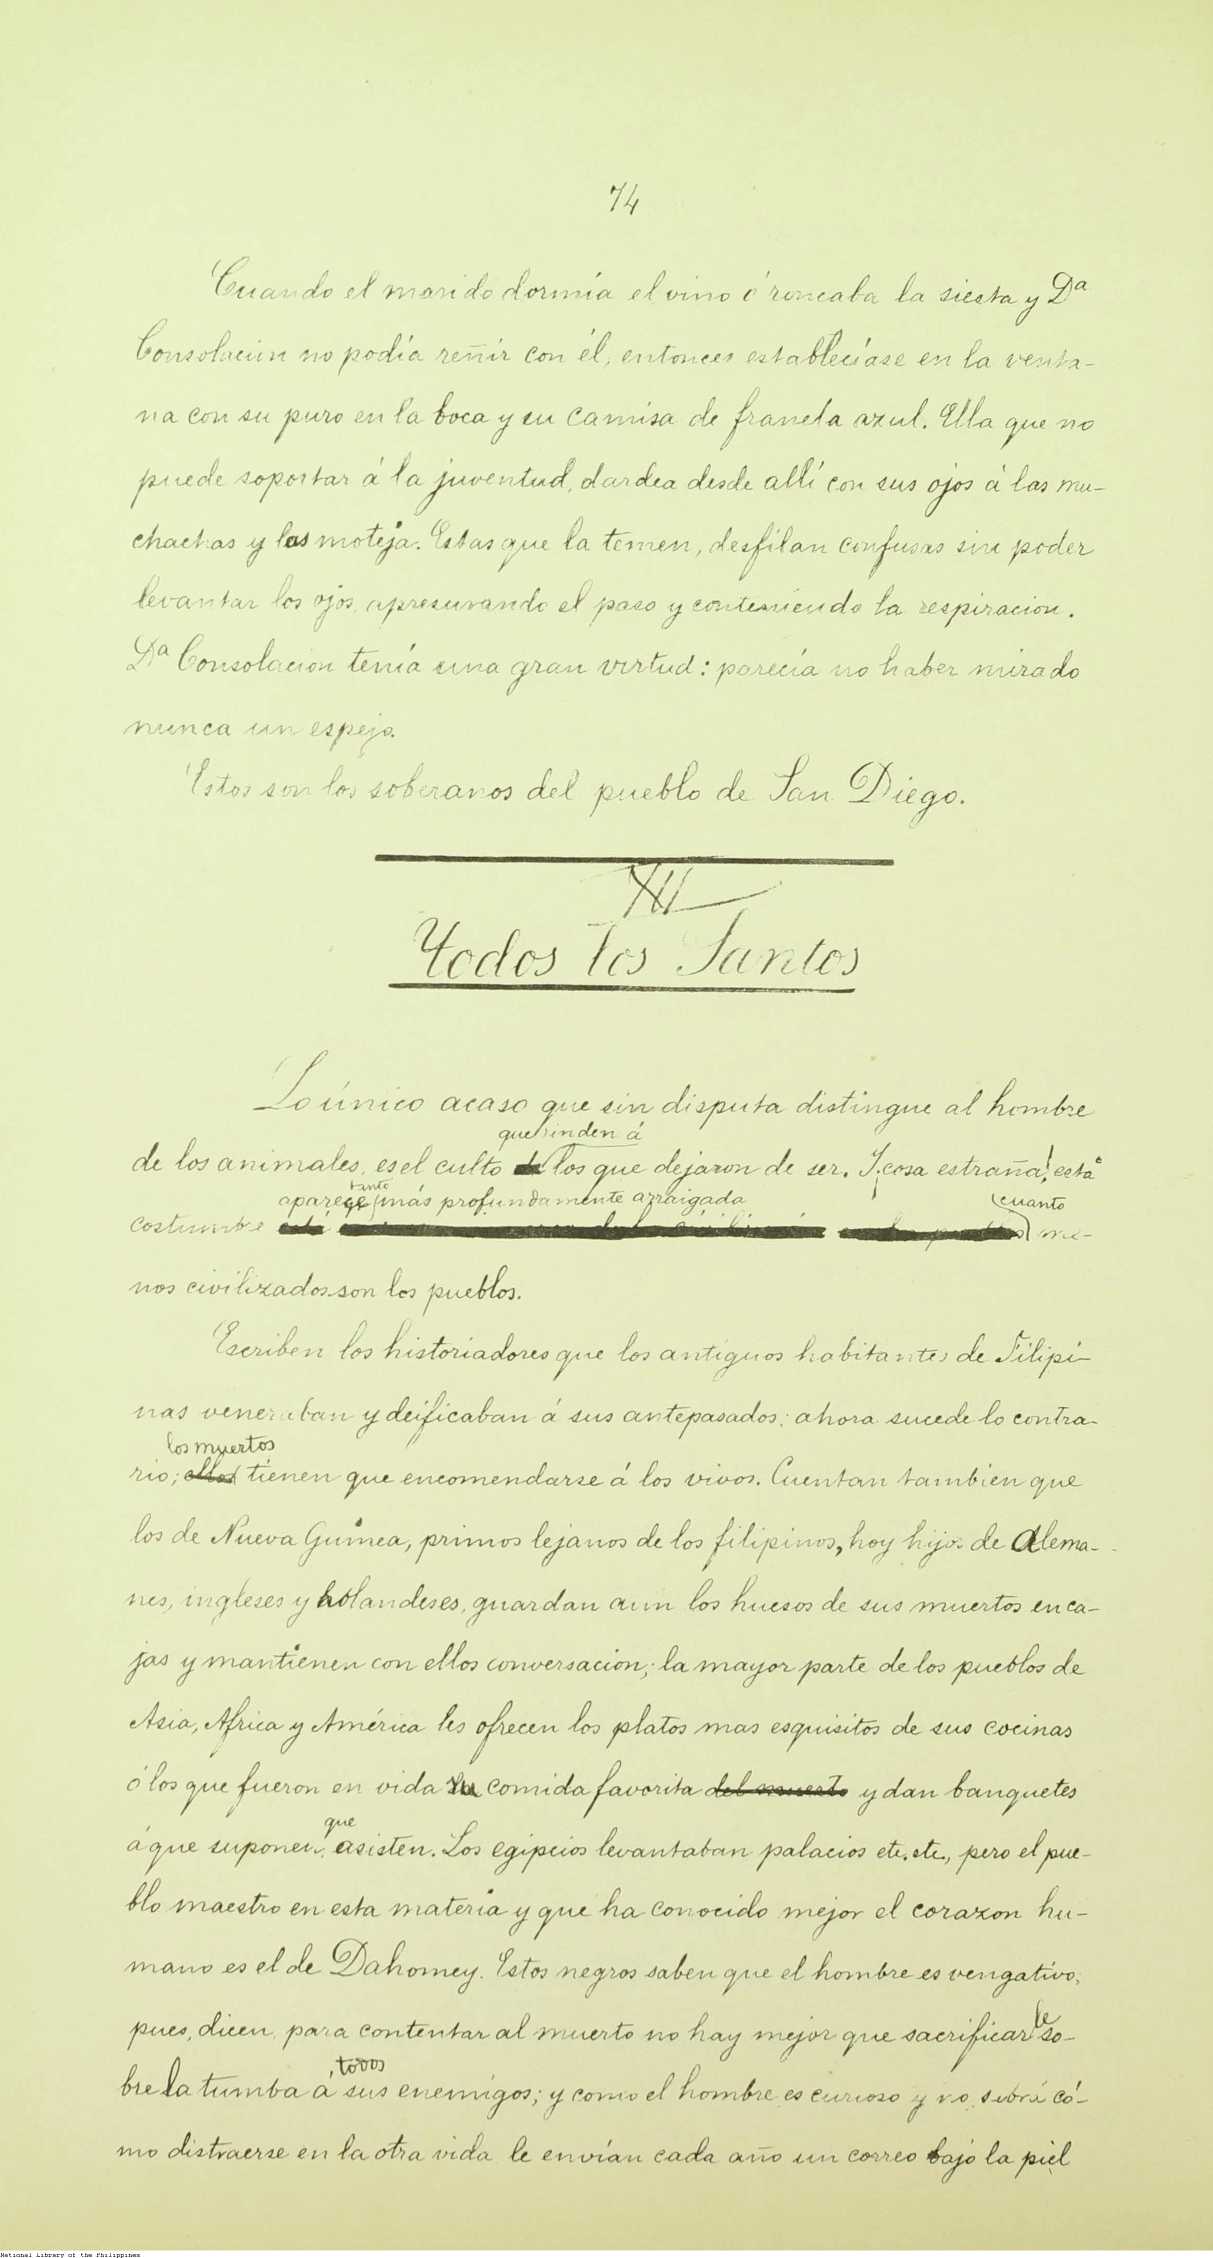 74
Cuando el marido dormía el vino ó roncaba la siesta y Dª
Consolacion no podía reñir con él, entonces establecíase en la venta-
na con su puro en la boca y su camisa de franela azul. Ella que no
puede soportar á la juventud, dardea desde allí con sus ojos á las mu-
chachas y las moteja. Estas que la temen, desfilan confusas sin poder
levantar los ojos, apresurando el paso y conteniendo la respiracion.
Dª Consolacion tenía una gran virtud: parecía no haber mirado
nunca un espejo.
Estos son los soberanos del pueblo de San Diego.
XII
Todos los Santos
Lo único acaso que sin disputa distingue al hombre
que rinden á
de los animales, es el culto de los que dejaron de ser. Y ¡cosa estraña! esta
aparece tanto más profundamente arraigada cuanto
costumbre está me-
nos civilizados son los pueblos.
Escriben los historiadores que los antiguos habitantes de Filipi-
nas veneraban y deificaban á sus antepasados; ahora sucede lo contra-
los muertos
rio; ellos tienen que encomendarse á los vivos. Cuentan tambien que
los de Nueva Guinea, primos lejanos de los filipinos, hoy hijos de alema-
nes, ingleses y holandeses, guardan aun los huesos de sus muertos en ca-
jas y mantienen con ellos conversacion; la mayor parte de los pueblos de
Asia, Africa y América les ofrecen los platos mas esquisitos de sus cocinas
ó los que fueron en vida su comida favorita del muerto y dan banquetes
que
á que suponen asisten. Los egipcios levantaban palacios etc. etc., pero el pue-
blo maestro en esta materia y que ha conocido mejor el corazon hu-
mano es el de Dahomey. Estos negros saben que el hombre es vengativo,
pues, dicen, para contentar al muerto no hay mejor que sacrificarle so-
todos
bre la tumba á sus enemigos; y como el hombre es curioso y no sabrá có-
mo distraerse en la otra vida le envían cada año un correo bajo la piel
National Library of the Philippines